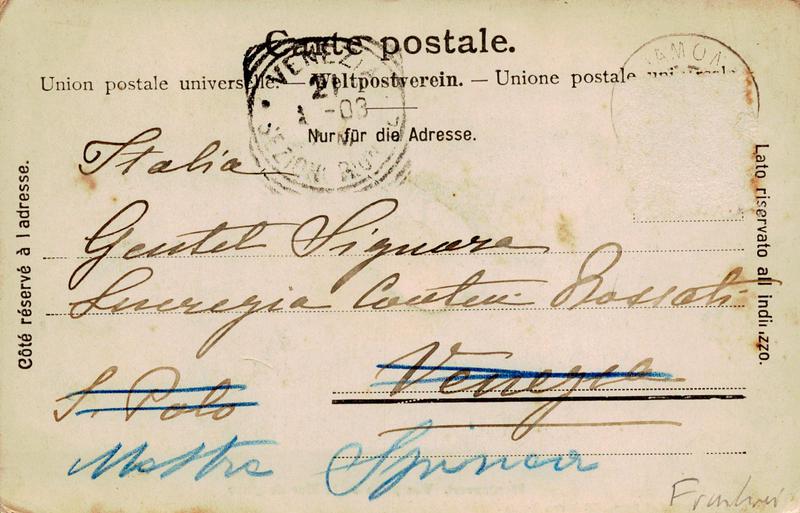 Carte postale.
Union postale universelle. — Weltpostverein. — Unione postale universale
Nur für die Adresse.
VENEZIA
21
-03
SEZIONI RIUNITE
AMON
Côté réservé à l adresse.
Lato riservato all indirizzo.
Italia
Gentil Signora
Lucrezia Contin Rossati
S. Polo Venezia
Mestre Spinea